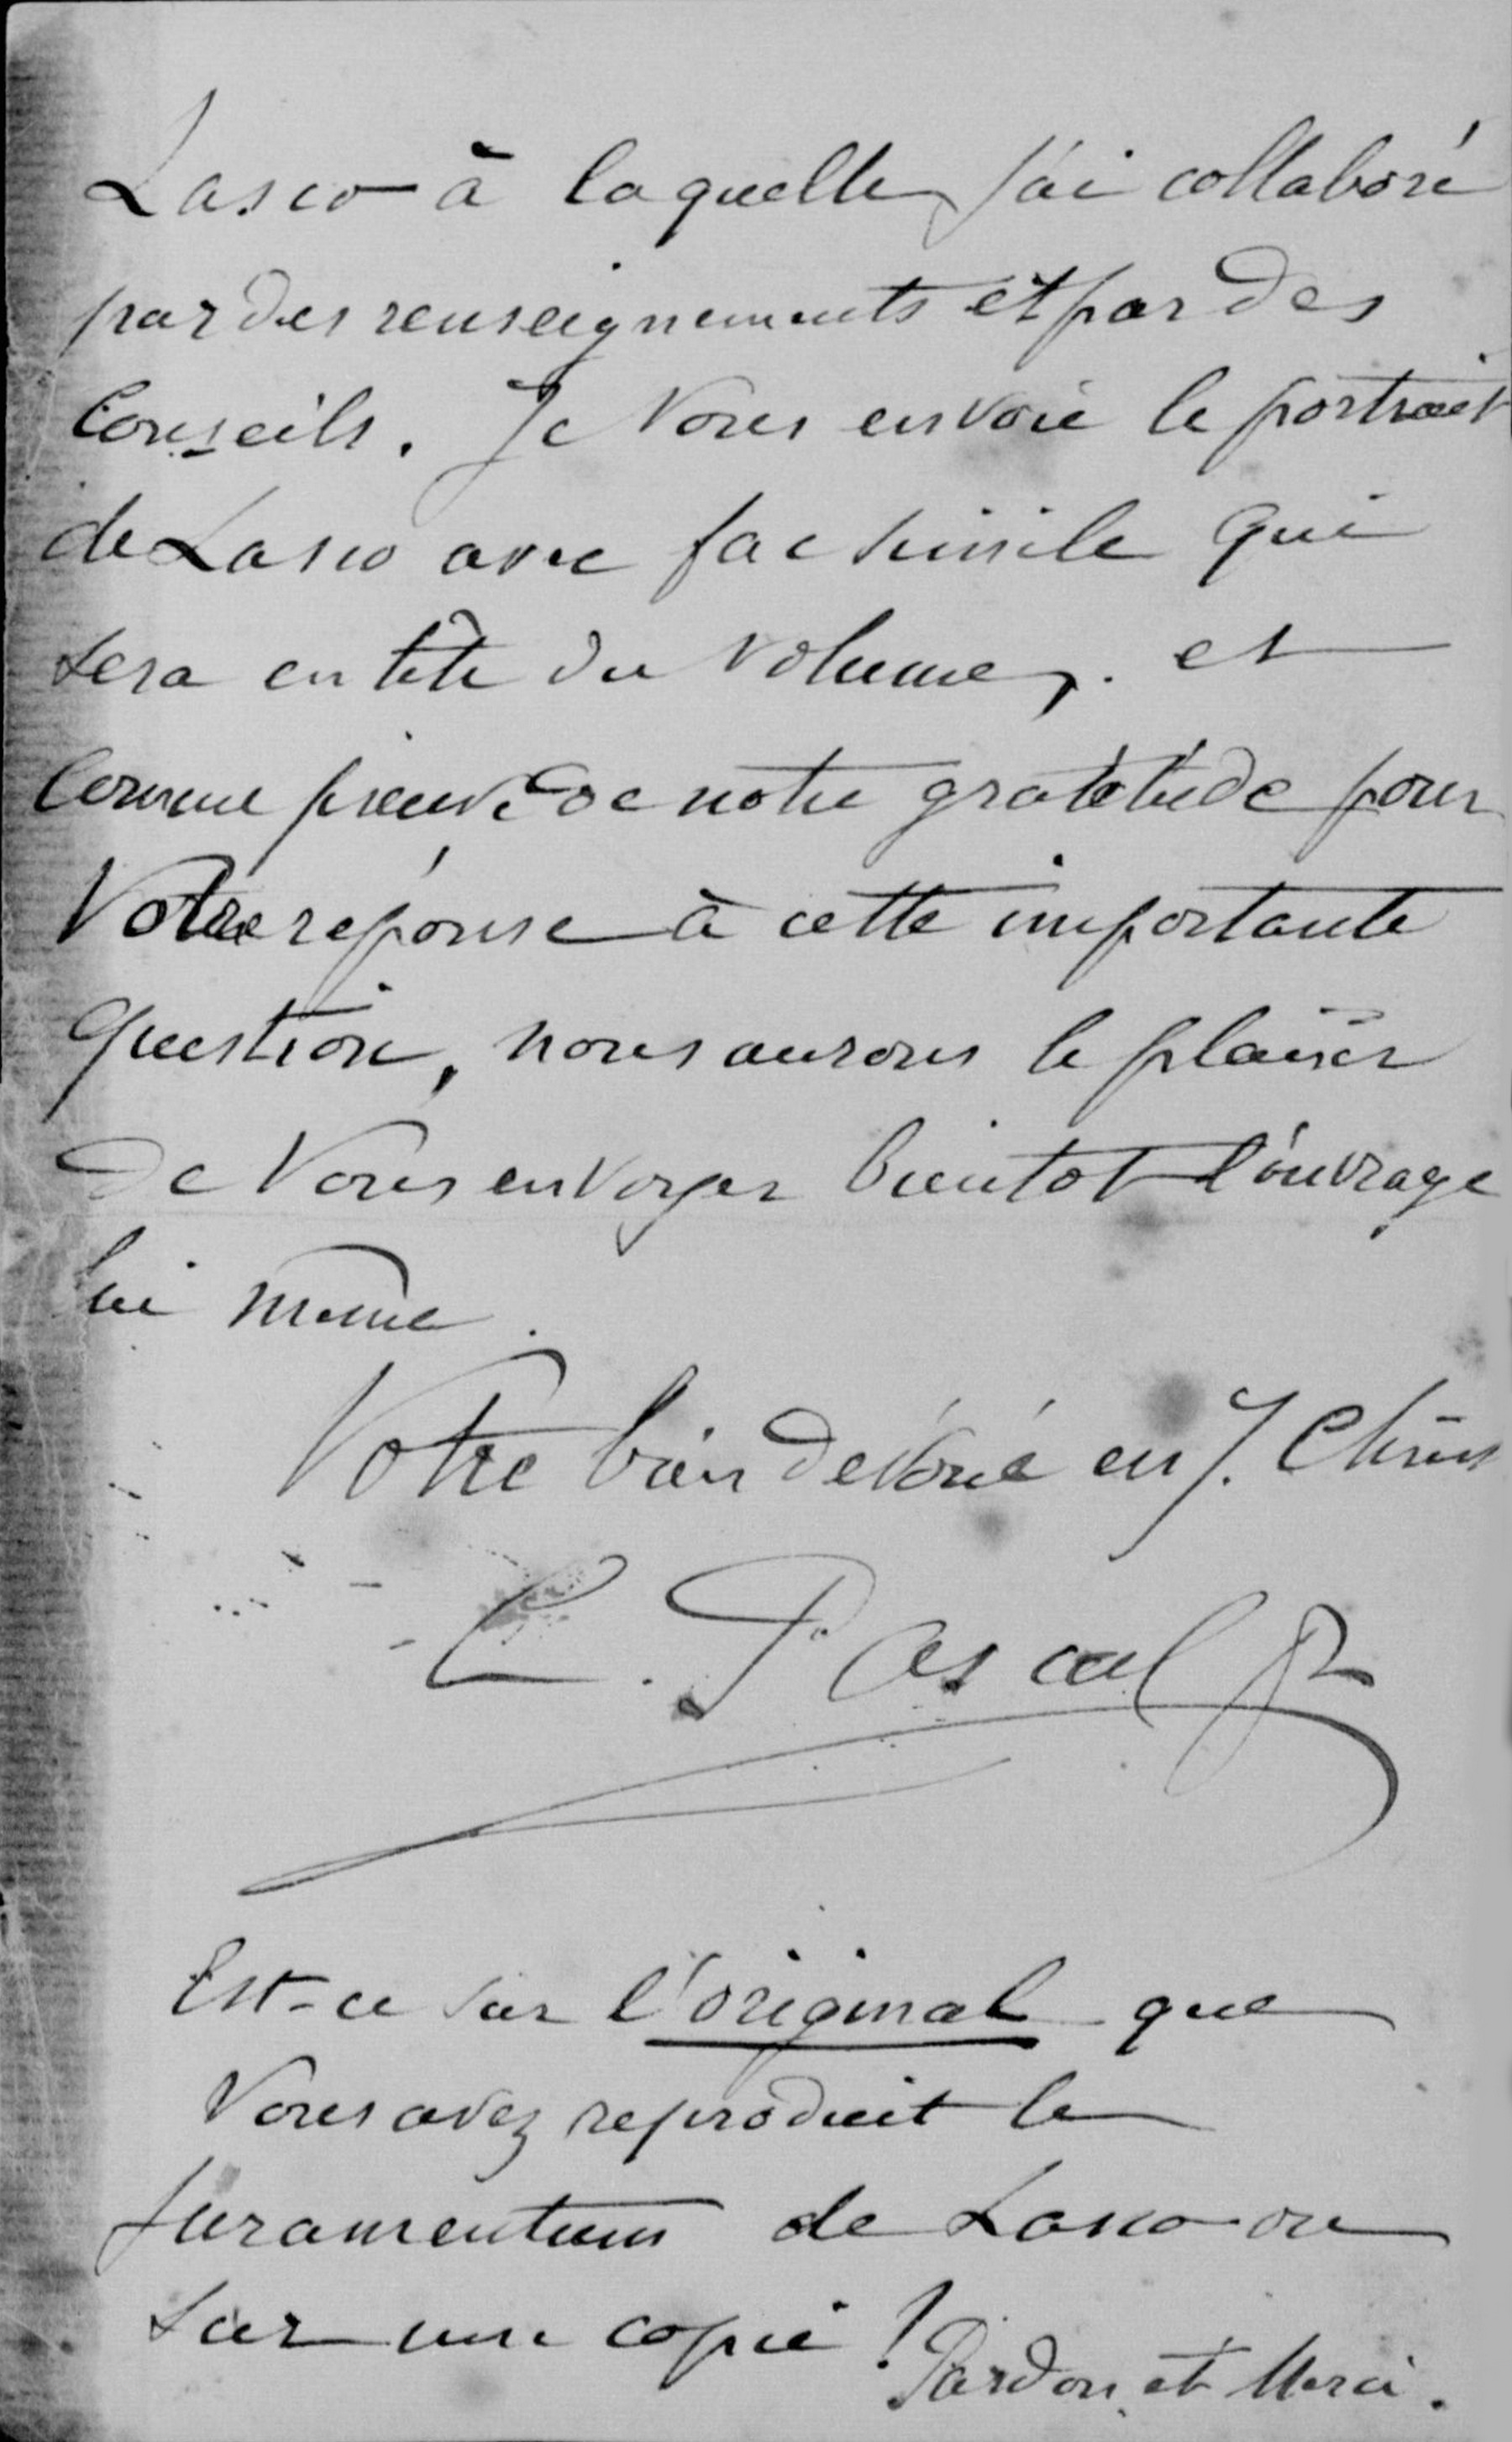 Lasco à laquelle j'ai collaboré
par des renseignements et par des
Conseils. Je Vous envoie le portrait
de Lasco avec fac simile qui
sera en tête du Volume, et
Comme preuve de notre gratitude pour
Votre réponse à cette importante
question, nous aurons le plaisir
de Vous envoyer bientot l'ouvrage
lui même.
Votre bien dévoué en J. Christ
Pascal
Est-ce sur l'original que
Vous avez reproduit le
juramentum de Lasco ou
sur une copie ?
Pardon et Merci.